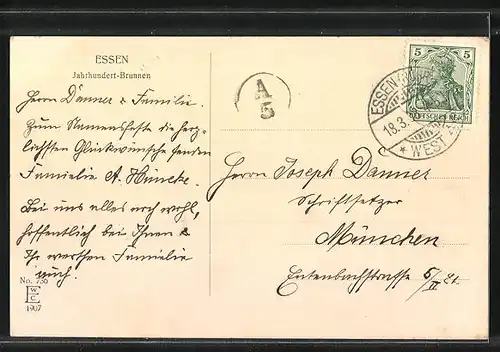 ESSEN
Jahrhundert-Brunnen
Herrn Danner & Familie.
Zum Namensfeste die herz-
lichsten Glückwünsche senden
Famielie A. Hüncke.
Bei uns alles noch wohl,
hoffentlich bei Ihnen &
Ihr werthen Famielie
auch.
No. 756
W
C
1907
A
5
5 5
DEUTSCHES REICH
ESSEN
18.3.
* WEST
Herrn Joseph Danner
Schriftsetzer
München
Entenbachstrasse 5/II